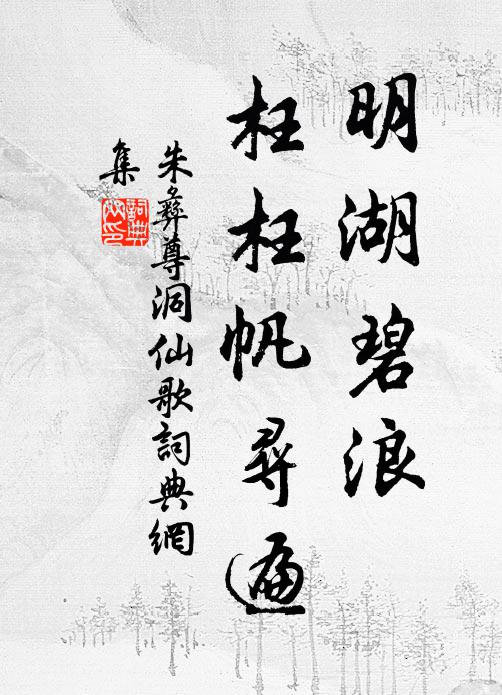 明湖碧浪
枉枉帆尋遍
朱彝尊洞仙歌詞典網
集
詞典網印